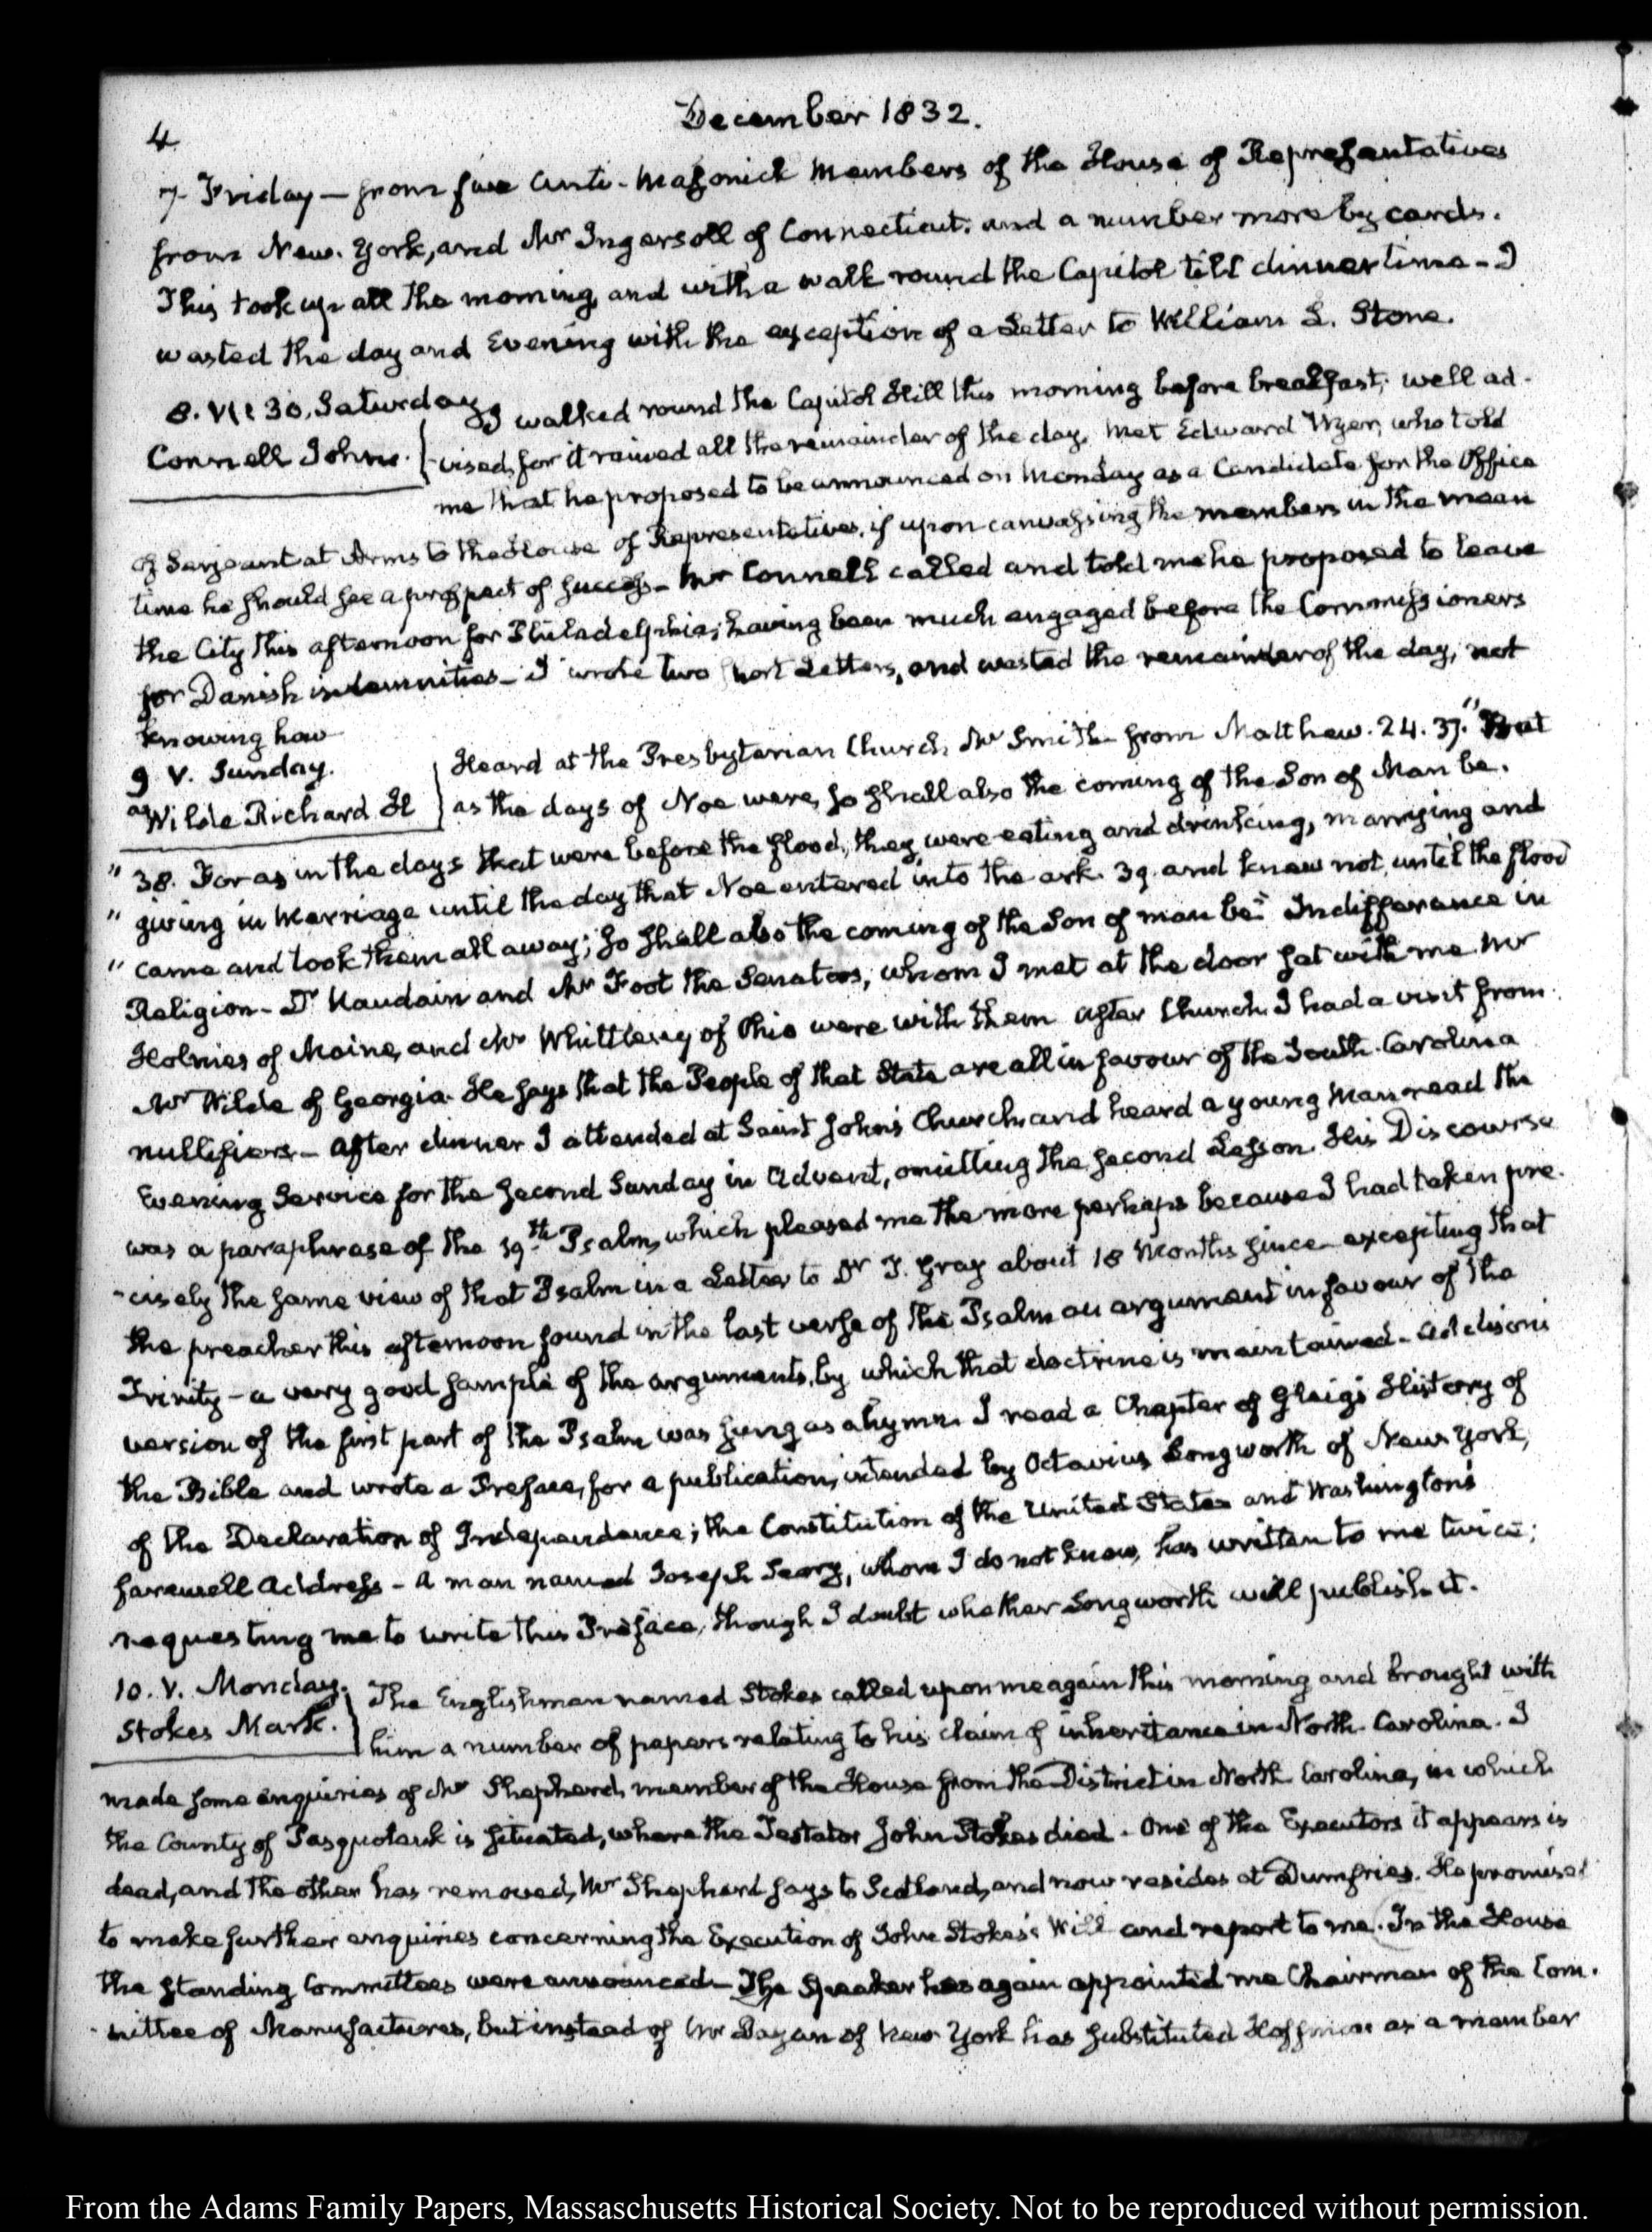 4
December 1832.
7. Friday — from five Anti-Masonick Members of the House of Representatives
from New-York, and Mr Ingersoll of Connecticut: and a number more by cards.
This took up all the morning, and with a walk round the Capitol till dinner time – I
wasted the day and Evening with the exception of a Letter to William L. Stone.
8. VII 30. Saturday
Connell John.
I walked round the Capitol Hill this morning before breakfast; well ad-
-vised, for it rained all the remainder of the day. Met Edward Wyer, who told
me that he proposed to be announced on Monday as a Candidate for the Office
of Serjeant at Arms to the House of Representatives, if upon canvassing the members in the mean
time he should see a prospect of success – Mr Connell called and told me he proposed to leave
the City this afternoon for Philadelphia; having been much engaged before the Commissioners
for Danish indemnities – I wrote two short Letters, and wasted the remainder of the day, not
knowing how
9. V. Sunday.
Wilde Richard H
Heard at the Presbyterian Church Mr Smith from Matthew. 24. 37. "But
as the days of Noe were, so shall also the coming of the Son of Man be.
" 38. For as in the days that were before the flood, they were eating and drinking, marrying and
" giving in Marriage until the day that Noe entered into the ark. 39. and knew not, until the flood
" came and took them all away; so shall also the coming of the Son of man be." Indifference in
Religion – Dr Naudain and Mr Foot the Senators, whom I met at the door sat with me Mr
Holmes of Maine, and Mr Whittlesey of Ohio were with them After Church I had a visit from
Mr Wilde of Georgia. He says that the People of that State are all in favour of the South-Carolina
nullifiers – After dinner I attended at Saint John's Church, and heard a young Man read the
Evening Service for the second Sunday in Advent, omitting the second Lesson. His Discourse
was a paraphrase of the 19th Psalm, which pleased me the more perhaps because I had taken pre-
-cisely the same view of that Psalm in a Letter to Dr T. Gray about 18 Months since – excepting that
the preacher this afternoon found in the last verse of the Psalm an argument in favour of the
Trinity – a very good sample of the arguments, by which that doctrine is maintained – Addison's
version of the first part of the Psalm was sung as a hymn. I read a Chapter of Gleig's History of
the Bible and wrote a Preface, for a publication, intended by Octavius Longworth of New York,
of the Declaration of Independence; the Constitution of the United States and Washington's
farewell Address – A man named Joseph Seary, whom I do not know, has written to me twice;
requesting me to write this Preface, though I doubt whether Longworth will publish it.
10. V. Monday.
Stokes Mark.
The Englishman named Stokes called upon me again this morning and brought with
him a number of papers relating to his claim of inheritance in North-Carolina. I
made some enquiries of Mr Shepherd, member of the House from the District in North Carolina, in which
the County of Pasquotank is situated, where the Testator John Stokes died – One of the Executors it appears is
dead, and the other has removed, Mr Shephard says to Scotland, and now resides at Dumfries. He promised
to make further enquiries concerning the Execution of John Stokes's Will and report to me. In the House
the standing Committees were announced – The Speaker has again appointed me Chairman of the Com-
-mittee of Manufactures, but instead of Mr Dayan of New York has substituted Hoffman as a member
From the Adams Family Papers, Massaschusetts Historical Society. Not to be reproduced without permission.